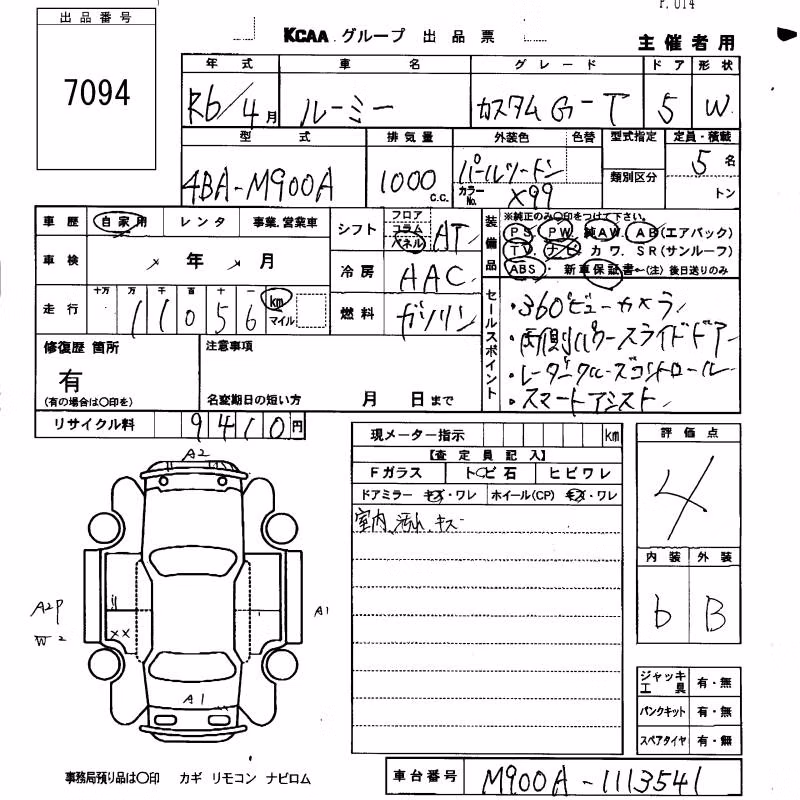 P. 014
出品番号
7094
KCAA グループ 出品票
主催者用
年式 車名 グレード ドア 形状
R6/4月 ルーミー カスタムG-T 5 W
型式 排気量 外装色 色替 型式指定 定員・積載
4BA-M900A 1000 C.C. パールツートン 類別区分 5名
カラーNo. X99 トン
車歴 自家用 レンタ 事業.営業車
シフト フロア コラム パネル AT
装備品 ※純正のみ○印をつけて下さい。
PS. PW. 純AW. AB(エアバック)
TV. ナビ. カワ. SR(サンルーフ)
ABS・新車保証書~(注)後日送りのみ
車検 年 月
冷房 AAC
走行 十万 万 千 百 十 一 km マイル
11056
燃料 ガソリン
セールスポイント
・360°ビューカメラ
・両側パワースライドドアー
・レーダークルーズコントロール
・スマートアシスト
修復歴 箇所
有
(有の場合は○印を)
注意事項
名変期日の短い方 月 日まで
リサイクル料 9410円
現メーター指示 km
【査定員記入】
Fガラス トビ石 ヒビワレ
ドアミラー キズ・ワレ ホイール(CP) キズ・ワレ
室内、汚れ、キズ
評価点
4
内装 外装
b B
A2
A2P
W2
XX
A1
A1
ジャッキ工具 有・無
パンクキット 有・無
スペアタイヤ 有・無
事務局預り品は○印 カギ リモコン ナビロム
車台番号 M900A-1113541